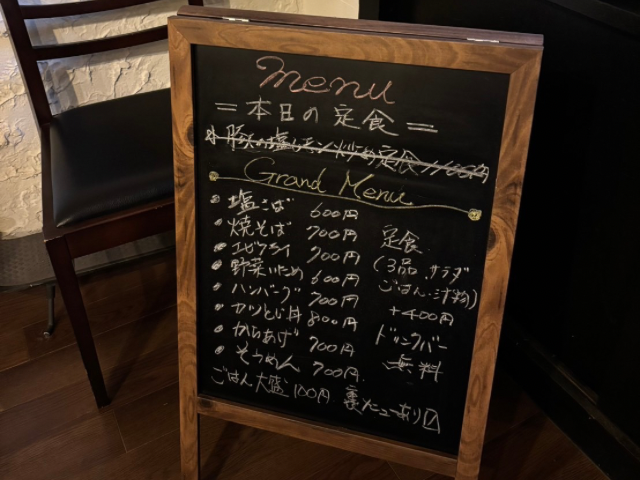 menu
=本日の定食=
豚の塩レモン炒め定食
Grand Menu
塩そば 600円
焼そば 700円
エビフライ 900円
野菜いため 600円
ハンバーグ 700円
カツとじ丼 800円
からあげ 700円
そうめん 700円
定食
(3品 サラダ
ごはん・汁物)
+400円
ドリンクバー
無料
ごはん大盛100円 裏メニューあり〼